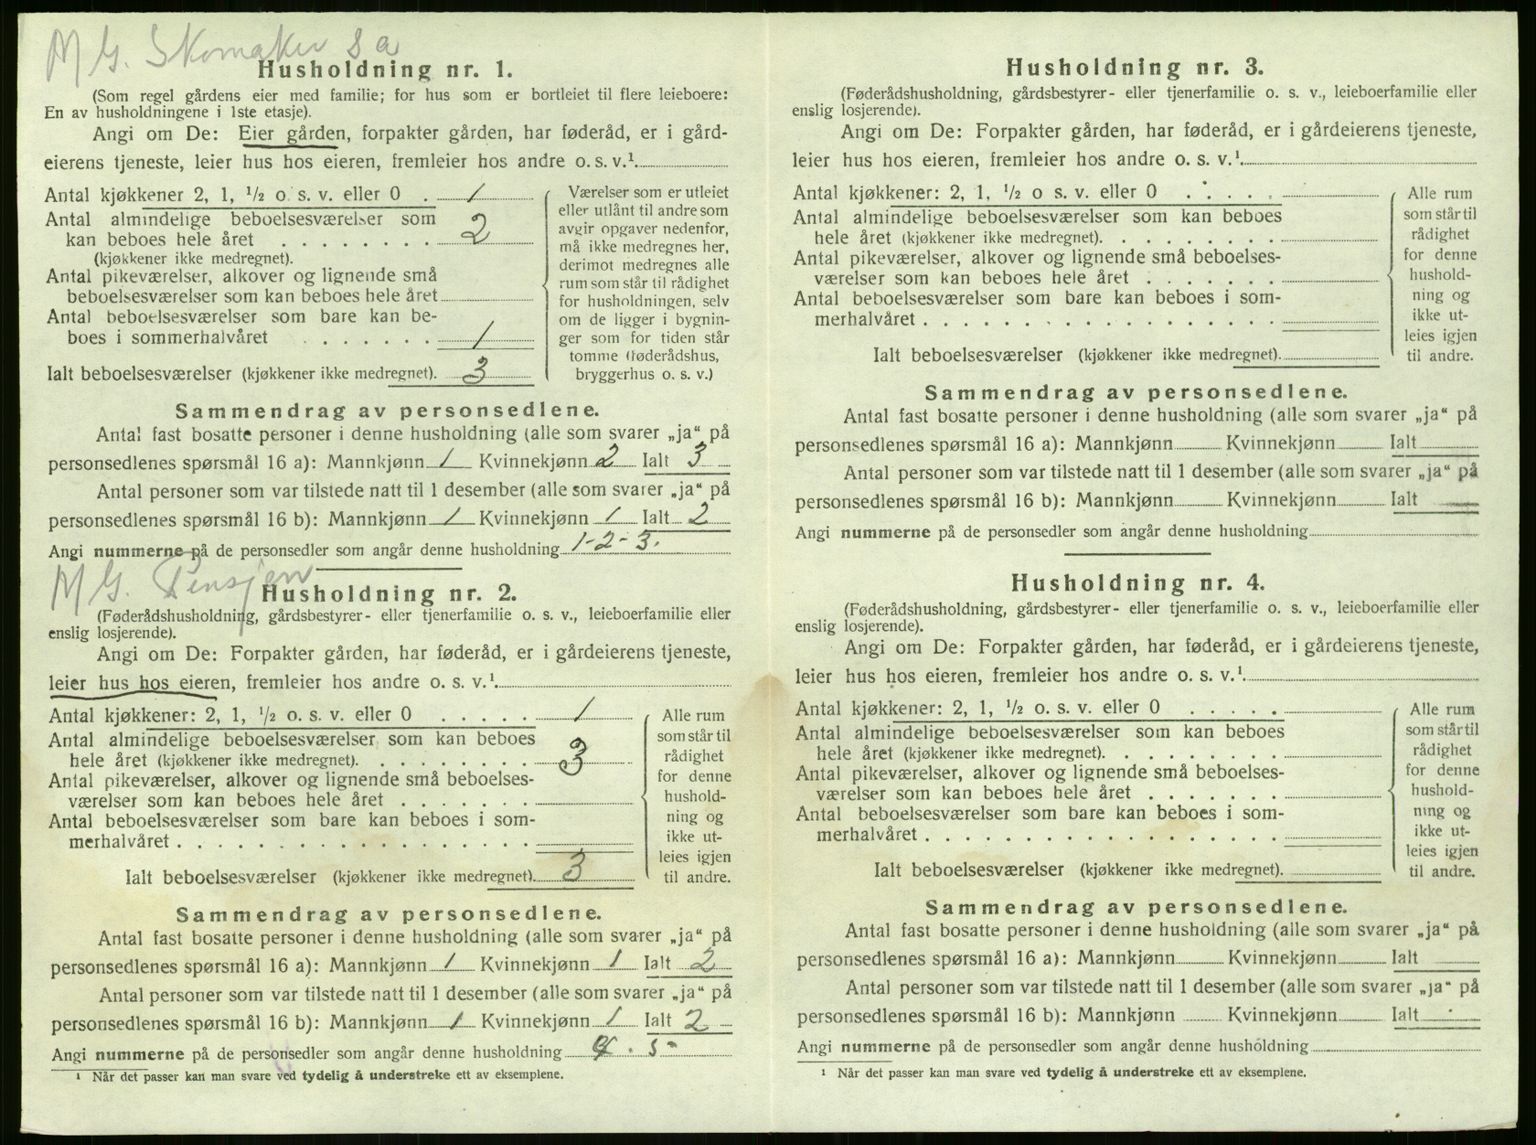 M G. Skomaker s a
Husholdning nr. 1.
(Som regel gårdens eier med familie; for hus som er bortleiet til flere leieboere:
En av husholdningene i 1ste etasje).
Angi om De: Eier gården, forpakter gården, har føderåd, er i gård-
eierens tjeneste, leier hus hos eieren, fremleier hos andre o. s. v.¹
Antal kjøkkener 2, 1, ½ o. s. v. eller 0 . 1
Antal almindelige beboelsesværelser som
kan beboes hele året . . . . . . . . 2
(kjøkkener ikke medregnet).
Antal pikeværelser, alkover og lignende små
beboelsesværelser som kan beboes hele året
Antal beboelsesværelser som bare kan be-
boes i sommerhalvåret . . . . . . . 1
Ialt beboelsesværelser (kjøkkener ikke medregnet). 3
Værelser som er utleiet
eller utlånt til andre som
avgir opgaver nedenfor,
må ikke medregnes her,
derimot medregnes alle
rum som står til rådighet
for husholdningen, selv
om de ligger i bygnin-
ger som for tiden står
tomme (føderådshus,
bryggerhus o. s. v.)
Sammendrag av personsedlene.
Antal fast bosatte personer i denne husholdning (alle som svarer „ja“ på
personsedlenes spørsmål 16 a): Mannkjønn 1 Kvinnekjønn 2 Ialt 3
Antal personer som var tilstede natt til 1 desember (alle som svarer „ja“ på
personsedlenes spørsmål 16 b): Mannkjønn 1 Kvinnekjønn 1 Ialt 2
Angi nummerne på de personsedler som angår denne husholdning 1-2-3.
M G. Pensjon
Husholdning nr. 2.
(Føderådshusholdning, gårdsbestyrer- eller tjenerfamilie o. s. v., leieboerfamilie eller
enslig losjerende).
Angi om De: Forpakter gården, har føderåd, er i gårdeierens tjeneste,
leier hus hos eieren, fremleier hos andre o. s. v.¹
Antal kjøkkener: 2, 1, ½ o. s. v. eller 0 . . . . . 1
Antal almindelige beboelsesværelser som kan beboes
hele året (kjøkkener ikke medregnet). . . . . . . . . 3
Antal pikeværelser, alkover og lignende små beboelses-
værelser som kan beboes hele året . . . . . . .
Antal beboelsesværelser som bare kan beboes i som-
merhalvåret . . . . . . . . . . . . . . . . . .
Ialt beboelsesværelser (kjøkkener ikke medregnet). 3
Alle rum
som står til
rådighet
for denne
hushold-
ning og
ikke ut-
leies igjen
til andre.
Sammendrag av personsedlene.
Antal fast bosatte personer i denne husholdning (alle som svarer „ja“ på
personsedlenes spørsmål 16 a): Mannkjønn 1 Kvinnekjønn 1 Ialt 2
Antal personer som var tilstede natt til 1 desember (alle som svarer „ja“ på
personsedlenes spørsmål 16 b): Mannkjønn 1 Kvinnekjønn 1 Ialt 2
Angi nummerne på de personsedler som angår denne husholdning 4. 5-
¹ Når det passer kan man svare ved tydelig å understreke ett av eksemplene.
Husholdning nr. 3.
(Føderådshusholdning, gårdsbestyrer- eller tjenerfamilie o. s. v., leieboerfamilie eller
enslig losjerende).
Angi om De: Forpakter gården, har føderåd, er i gårdeierens tjeneste,
leier hus hos eieren, fremleier hos andre o. s. v.¹
Antal kjøkkener: 2, 1, ½ o s. v. eller 0 . . . . .
Antal almindelige beboelsesværelser som kan beboes
hele året (kjøkkener ikke medregnet). . . . . . . . .
Antal pikeværelser, alkover og lignende små beboelses-
værelser som kan beboes hele året . . . . . . .
Antal beboelsesværelser som bare kan beboes i som-
merhalvåret . . . . . . . . . . . . . . . . . .
Ialt beboelsesværelser (kjøkkener ikke medregnet).
Alle rum
som står til
rådighet
for denne
hushold-
ning og
ikke ut-
leies igjen
til andre.
Sammendrag av personsedlene.
Antal fast bosatte personer i denne husholdning (alle som svarer „ja“ på
personsedlenes spørsmål 16 a): Mannkjønn Kvinnekjønn Ialt
Antal personer som var tilstede natt til 1 desember (alle som svarer „ja“ på
personsedlenes spørsmål 16 b): Mannkjønn Kvinnekjønn Ialt
Angi nummerne på de personsedler som angår denne husholdning
Husholdning nr. 4.
(Føderådshusholdning, gårdsbestyrer- eller tjenerfamilie o. s. v., leieboerfamilie eller
enslig losjerende).
Angi om De: Forpakter gården, har føderåd, er i gårdeierens tjeneste,
leier hus hos eieren, fremleier hos andre o. s. v.¹
Antal kjøkkener: 2, 1, ½ o. s. v. eller 0 . . . . .
Antal almindelige beboelsesværelser som kan beboes
hele året (kjøkkener ikke medregnet). . . . . . . . .
Antal pikeværelser, alkover og lignende små beboelses-
værelser som kan beboes hele året . . . . . . .
Antal beboelsesværelser som bare kan beboes i som-
merhalvåret . . . . . . . . . . . . . . . . . .
Ialt beboelsesværelser (kjøkkener ikke medregnet).
Alle rum
som står til
rådighet
for denne
hushold-
ning og
ikke ut-
leies igjen
til andre.
Sammendrag av personsedlene.
Antal fast bosatte personer i denne husholdning (alle som svarer „ja“ på
personsedlenes spørsmål 16 a): Mannkjønn Kvinnekjønn Ialt
Antal personer som var tilstede natt til 1 desember (alle som svarer „ja“ på
personsedlenes spørsmål 16 b): Mannkjønn Kvinnekjønn Ialt
Angi nummerne på de personsedler som angår denne husholdning
¹ Når det passer kan man svare ved tydelig å understreke ett av eksemplene.